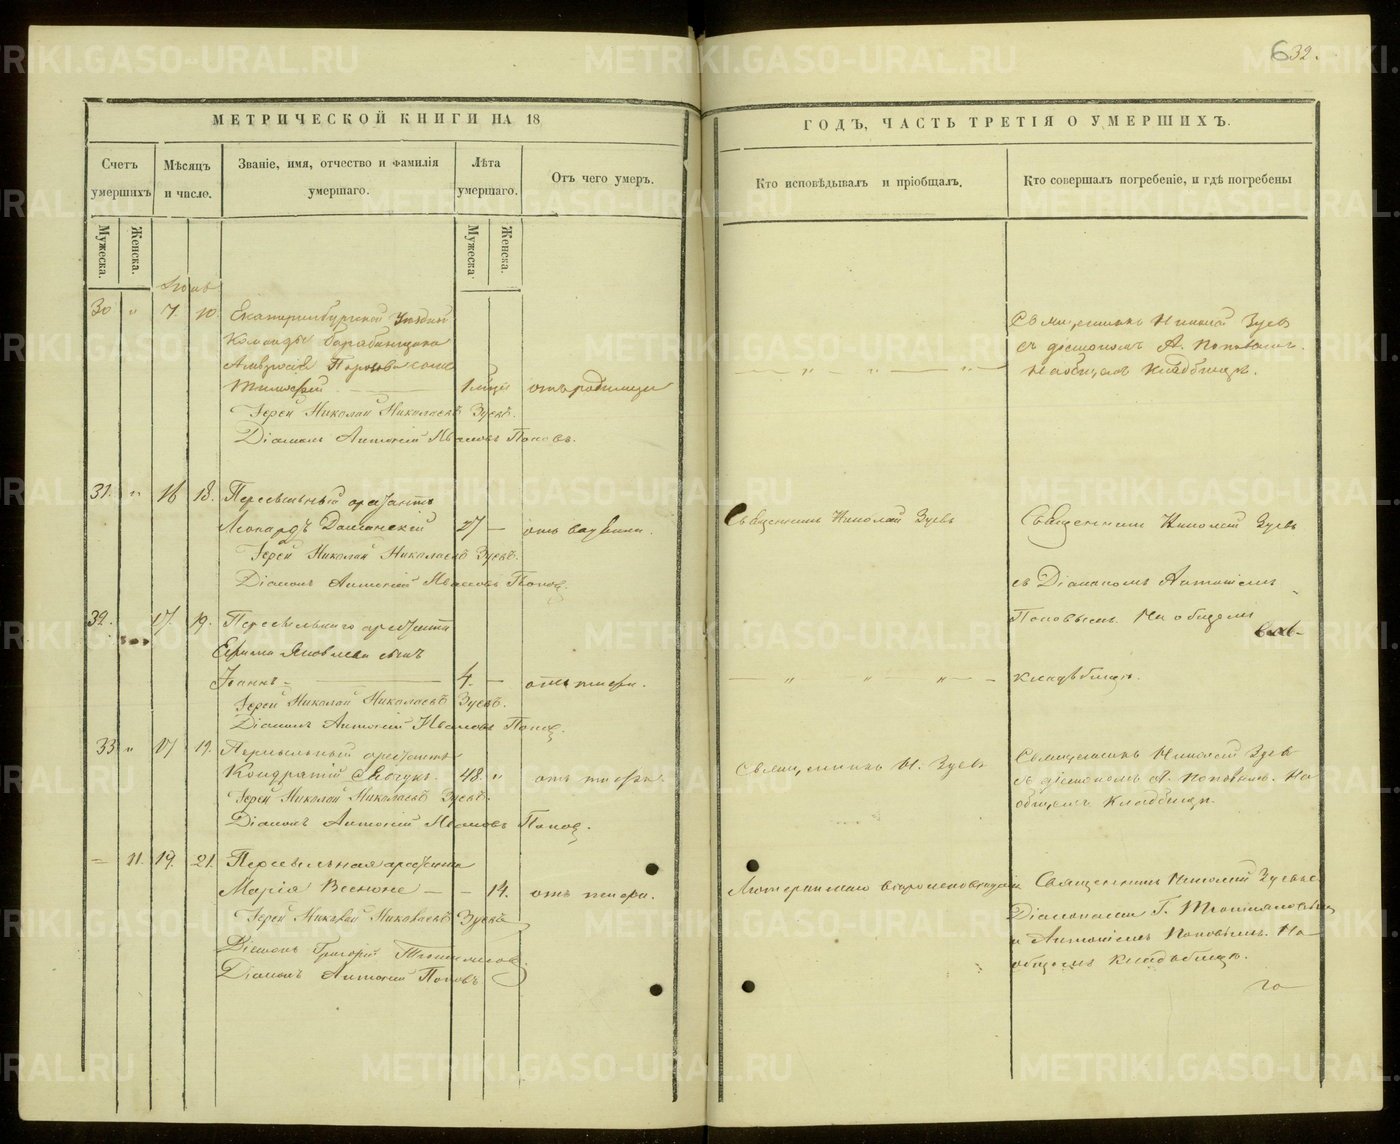 632.
МЕТРИЧЕСКОЙ КНИГИ НА 18
ГОДЪ, ЧАСТЬ ТРЕТІЯ О УМЕРШИХЪ.
Счетъ умершихъ
Мѣсяцъ и число.
Званіе, имя, отчество и фамилія умершаго.
Лѣта умершаго.
Отъ чего умеръ.
Кто исповѣдывалъ и пріобщалъ.
Кто совершалъ погребеніе, и гдѣ погребены
Мужеска.
Женска.
Мужеска
Женска.
30 " 7. 10. Екатеринбургской Уѣздной
Команды барабанщика
Амвросія сынъ
Тимофей 1 мѣсяц отъ родимца
Священникъ Николай Зуевъ
съ діакономъ А. Поповымъ.
На общемъ Кладбищѣ.
Іерей Николай Николаевъ Зуевъ.
Діаконъ Антоній Ивановъ Поповъ.
31. " 16 18. Пересыльный арестантъ
27 —
Священникъ Николай Зуевъ
Священникъ Николай Зуевъ
Іерей Николай Николаевъ Зуевъ.
Діаконъ Антоній Ивановъ Попов.
съ Діакономъ Антоніемъ
Поповымъ. На общемъ
кладбищѣ.
32. 17. 19. Пересыльнаго арестанта
Ефима Яковлева сынъ
Іоаннъ — 4. —
Іерей Николай Николаевъ Зуевъ.
Діаконъ Антоній Ивановъ Попов.
33 " 17 19. Пересыльный арестантъ
Кондратій 48. " отъ тифа.
Священникъ Н. Зуевъ
Священникъ Николай Зуевъ
съ діакономъ А. Поповымъ. На
общемъ Кладбищѣ.
Іерей Николай Николаевъ Зуевъ.
Діаконъ Антоній Ивановъ Попов.
— 11. 19. 21. Пересыльная арестантка
Марія — — 14. отъ тифа.
Лютеранскаго вѣроисповѣданія
Священникъ Николай Зуевъ съ
Діаконами Г.
и Антоніемъ Поповымъ. На
общемъ Кладбищѣ.
Іерей Николай Николаевъ Зуевъ
Діаконъ Григорій
Діаконъ Антоній Поповъ
METRIKI.GASO-URAL.RU